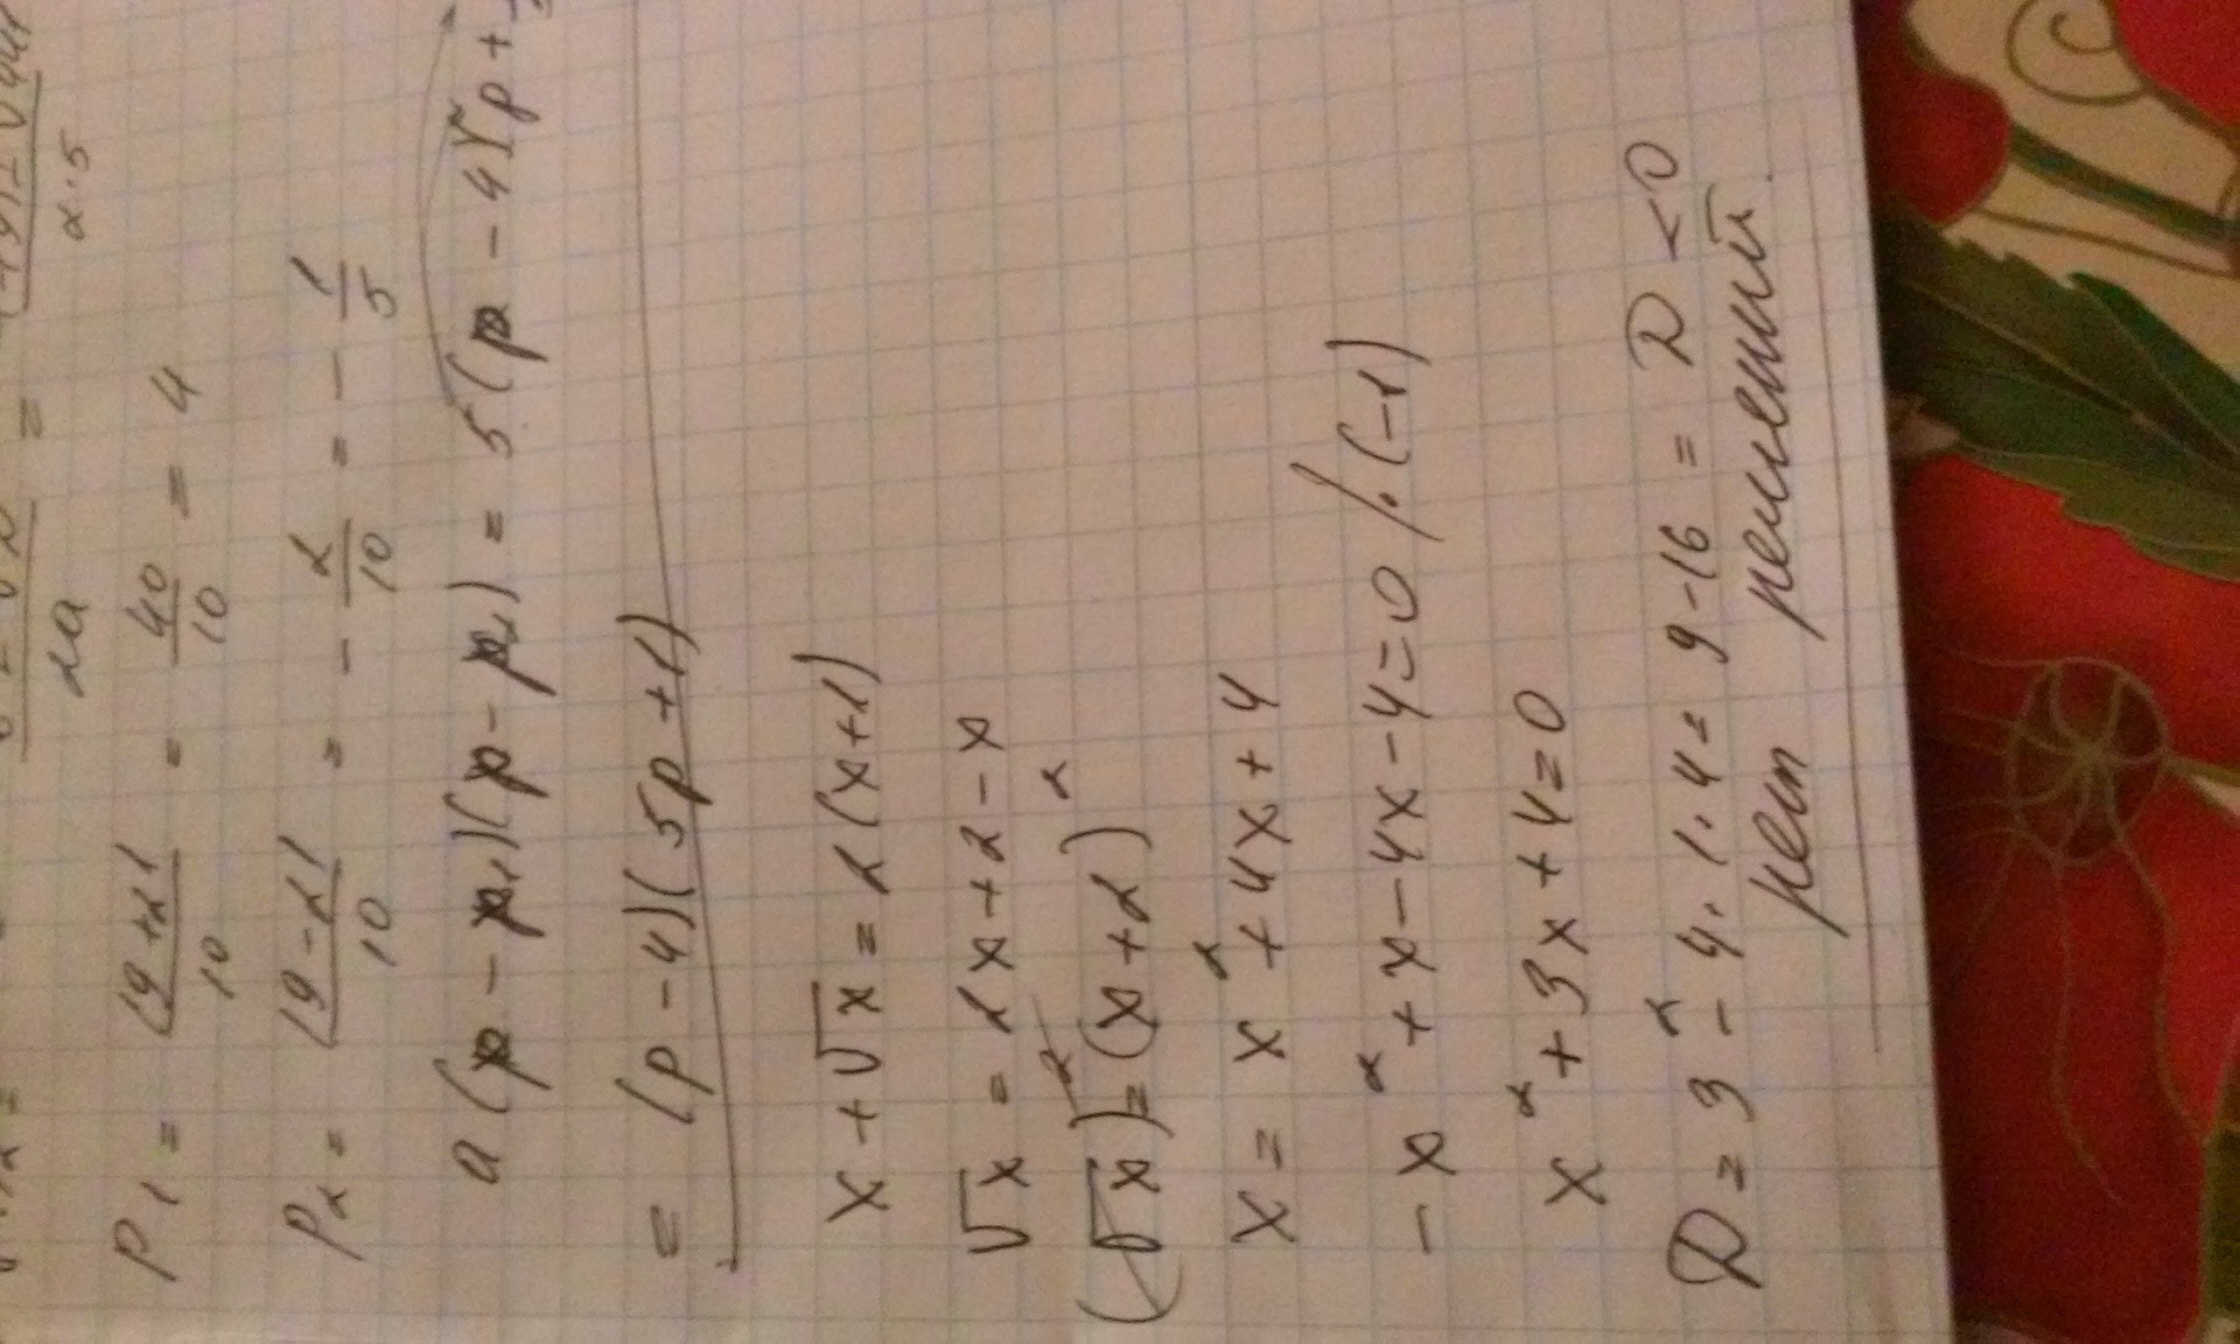 2a =
2·5
p₁ = (19+21)/10 = 40/10 = 4
p₂ = (19-21)/10 = -2/10 = -1/5
a(p-p₁)(p-p₂) = 5(p-4)(p+
= (p-4)(5p+1)
x+√x=2(x+1)
√x = 2x+2-x
(√x)²=(x+2)²
x=x²+4x+4
-x²+x-4x-4=0 /·(-1)
x²+3x+4=0
D=3²-4·1·4=9-16= D<0
нет решений.